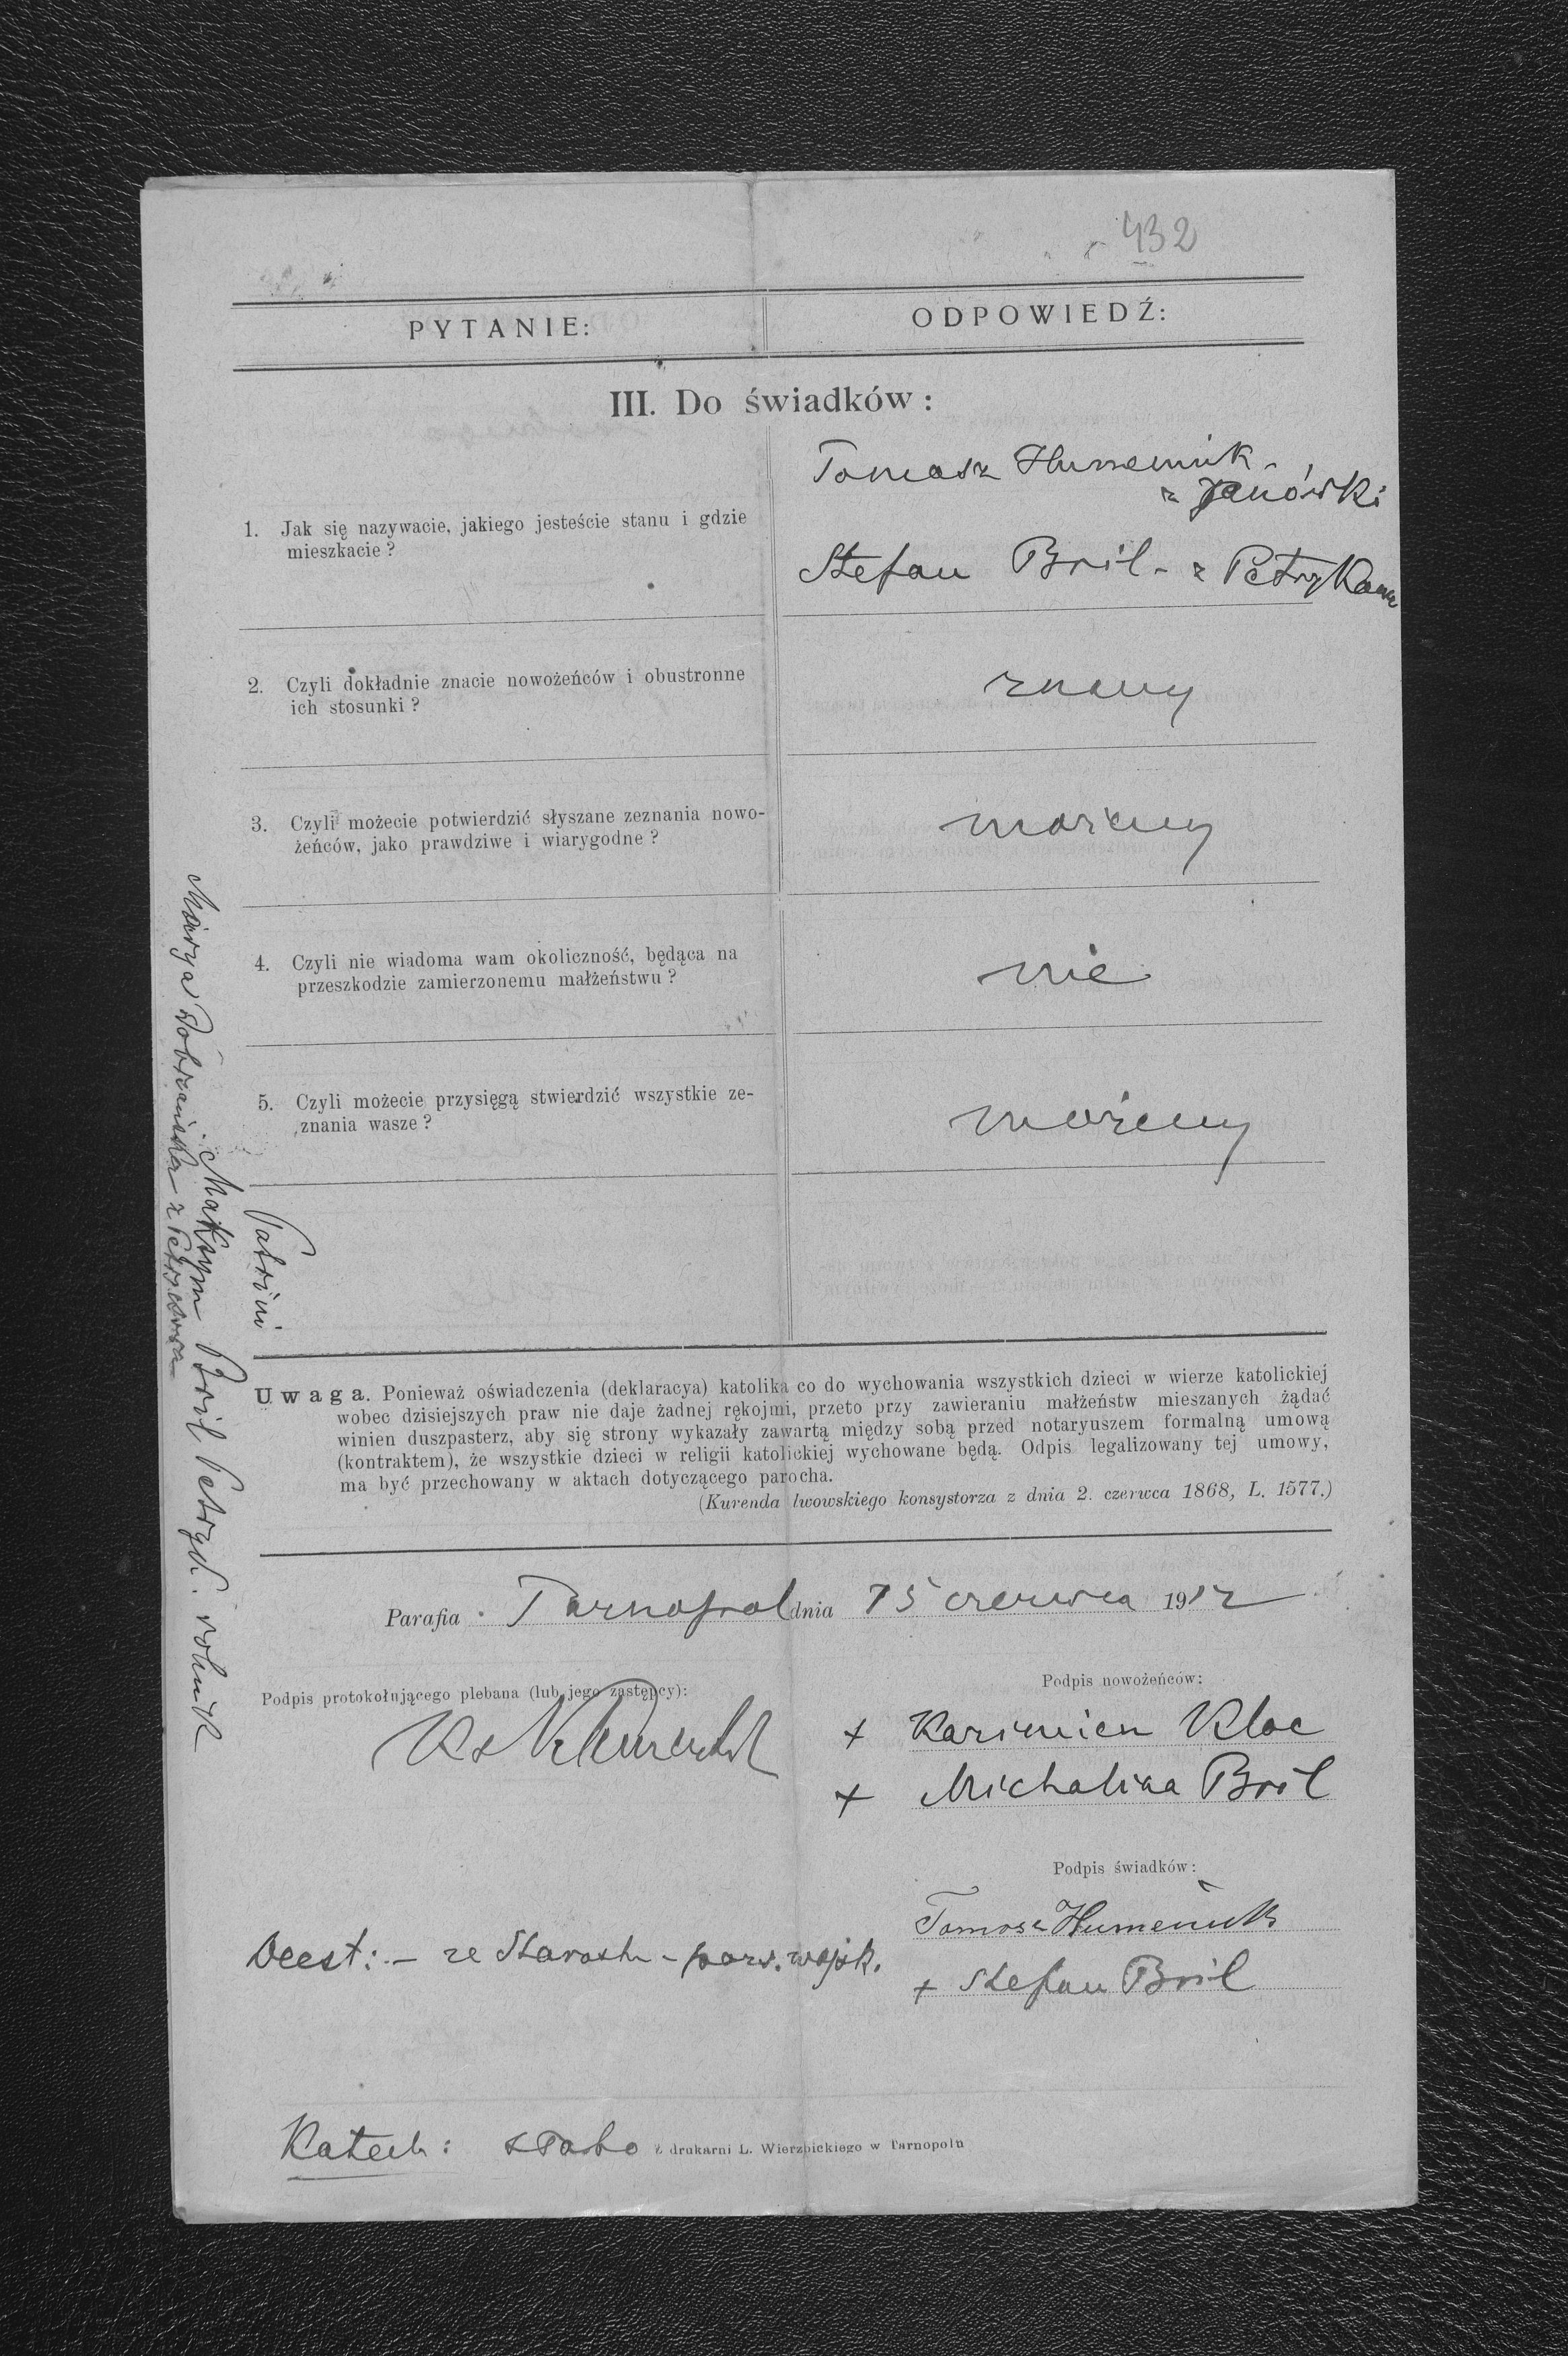 432
PYTANIE:
ODPOWIEDŹ:
III. Do świadków:
1. Jak się nazywacie, jakiego jesteście stanu i gdzie
mieszkacie?
Tomasz Humeniuk -
z Janówki
Stefan Bril - z Petrykowa
2. Czyli dokładnie znacie nowożeńców i obustronne
ich stosunki?
znamy
3. Czyli możecie potwierdzić słyszane zeznania nowo-
żeńców, jako prawdziwe i wiarygodne?
możemy
4. Czyli nie wiadoma wam okoliczność, będąca na
przeszkodzie zamierzonemu małżeństwu?
nie
5. Czyli możecie przysięgą stwierdzić wszystkie ze-
znania wasze?
możemy
Patrini
Maksym Bril Petryk. rolnik
Marya z
Uwaga. Ponieważ oświadczenia (deklaracya) katolika co do wychowania wszystkich dzieci w wierze katolickiej
wobec dzisiejszych praw nie daje żadnej rękojmi, przeto przy zawieraniu małżeństw mieszanych żądać
winien duszpasterz, aby się strony wykazały zawartą między sobą przed notaryuszem formalną umową
(kontraktem), że wszystkie dzieci w religii katolickiej wychowane będą. Odpis legalizowany tej umowy,
ma być przechowany w aktach dotyczącego parocha.
(Kurenda lwowskiego konsystorza z dnia 2. czerwca 1868, L. 1577.)
Parafia Tarnopol dnia 15 czerwca 1912
Podpis protokołującego plebana (lub jego zastępcy):
Ks
Podpis nowożeńców:
+ Kazimierz Kloc
+ Michalina Bril
Podpis świadków:
Tomasz Humeniuk
+ Stefan Bril
Deest: - ze Starostw - pozw. wojsk.
Katech: słabo
Z drukarni L. Wierzbickiego w Tarnopolu